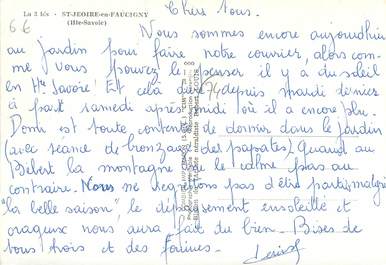 La 2 bis - ST-JEOIRE-en-FAUCIGNY
(Hte-Savoie)
66
Chers tous.
Nous sommes encore aujourdhui
au jardin pour faire notre courrier, alors com-
me vous pouvez le penser il y a du soleil
en Hte Savoie! Et cela dure depuis mardi dernier
à part samedi après midi où il a encore plu.
Domi est toute contente de dormir dans le jardin
(avec séance de bronzage des papates) Quand au
Bébert la montagne ne le calme pas au
contraire. Nous ne regrettons pas d'être partis, malgré
"la belle saison", le dépaysement ensoleillé et
orageux nous aura fait du bien. Bises de
tous trois et des